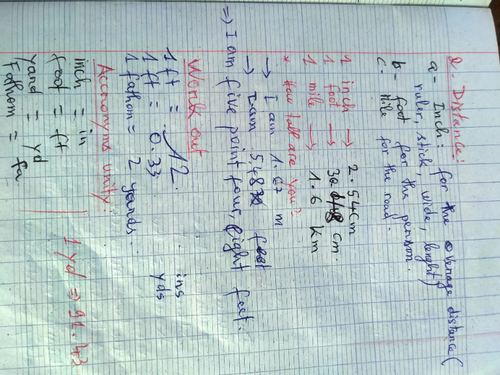 2 - Distance:
a - Inch: for the average distance (
ruler, stick, wide, lenght)
b - foot for the person.
c - Mile for the road.
1 inch → 2.54cm
1 foot → 30.48 cm
1 mile → 1.6 km
* How tall are you?
→ I am 1.67 m
→ I am 5.48 feet
⇒ I am five point four, eight feet.
Work out
1 ft = 12 ins
1 ft = 0.33 yds
1 fathom = 2 yards.
Accronyms unity:
inch = in
foot = ft
yand = yd
Fathom = fa
1 yd ⇒ 91.43